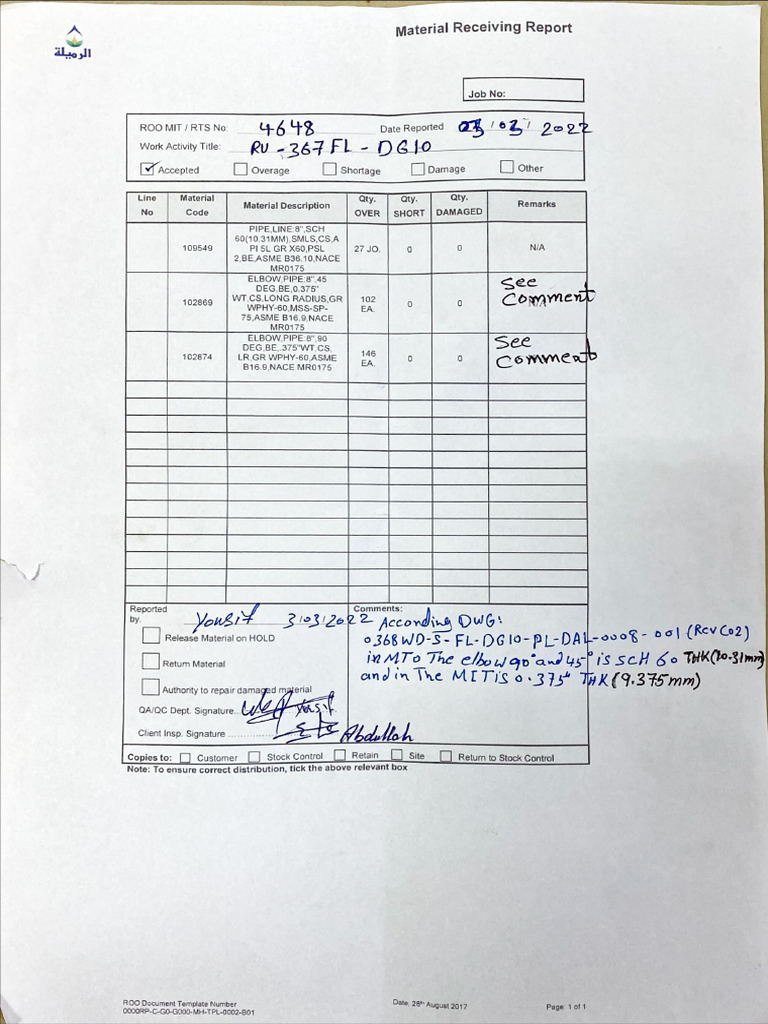 الرميلة
Material Receiving Report
Job No:
ROO MIT / RTS No: 4648 Date Reported 03/03/2022
Work Activity Title: RU-367 FL - DG10
Accepted Overage Shortage Damage Other
Line No Material Code Material Description Qty. OVER Qty. SHORT Qty. DAMAGED Remarks
PIPE,LINE:8",SCH
60(10.31MM),SMLS,CS,A
109549 PI 5L GR X60,PSL 27 JO. 0 0 N/A
2,BE,ASME B36.10,NACE
MR0175
ELBOW,PIPE:8",45
DEG,BE,0.375"
102869 WT,CS,LONG RADIUS,GR 102 EA. 0 0 See Comment
WPHY-60,MSS-SP-
75,ASME B16.9,NACE
MR0175
ELBOW,PIPE:8",90
DEG,BE,.375"WT,CS,
102874 LR,GR WPHY-60,ASME 146 EA. 0 0 See Comment
B16.9,NACE MR0175
Reported by. Yousif 3/03/2022
Release Material on HOLD
Return Material
Authority to repair damaged material
QA/QC Dept. Signature.. Yousif
Client Insp. Signature .............. Abdullah
Comments: According DWG:
0368WD-S-FL-DG10-PL-DAL-0008-001 (Rev C02)
in MTO The elbow 90° and 45° is SCH 60 THK (10.31mm)
and in The MIT is 0.375" THK (9.375mm)
Copies to: Customer Stock Control Retain Site Return to Stock Control
Note: To ensure correct distribution, tick the above relevant box
ROO Document Template Number
0000RP-C-G0-G000-MH-TPL-0002-B01
Date: 28th August 2017
Page: 1 of 1